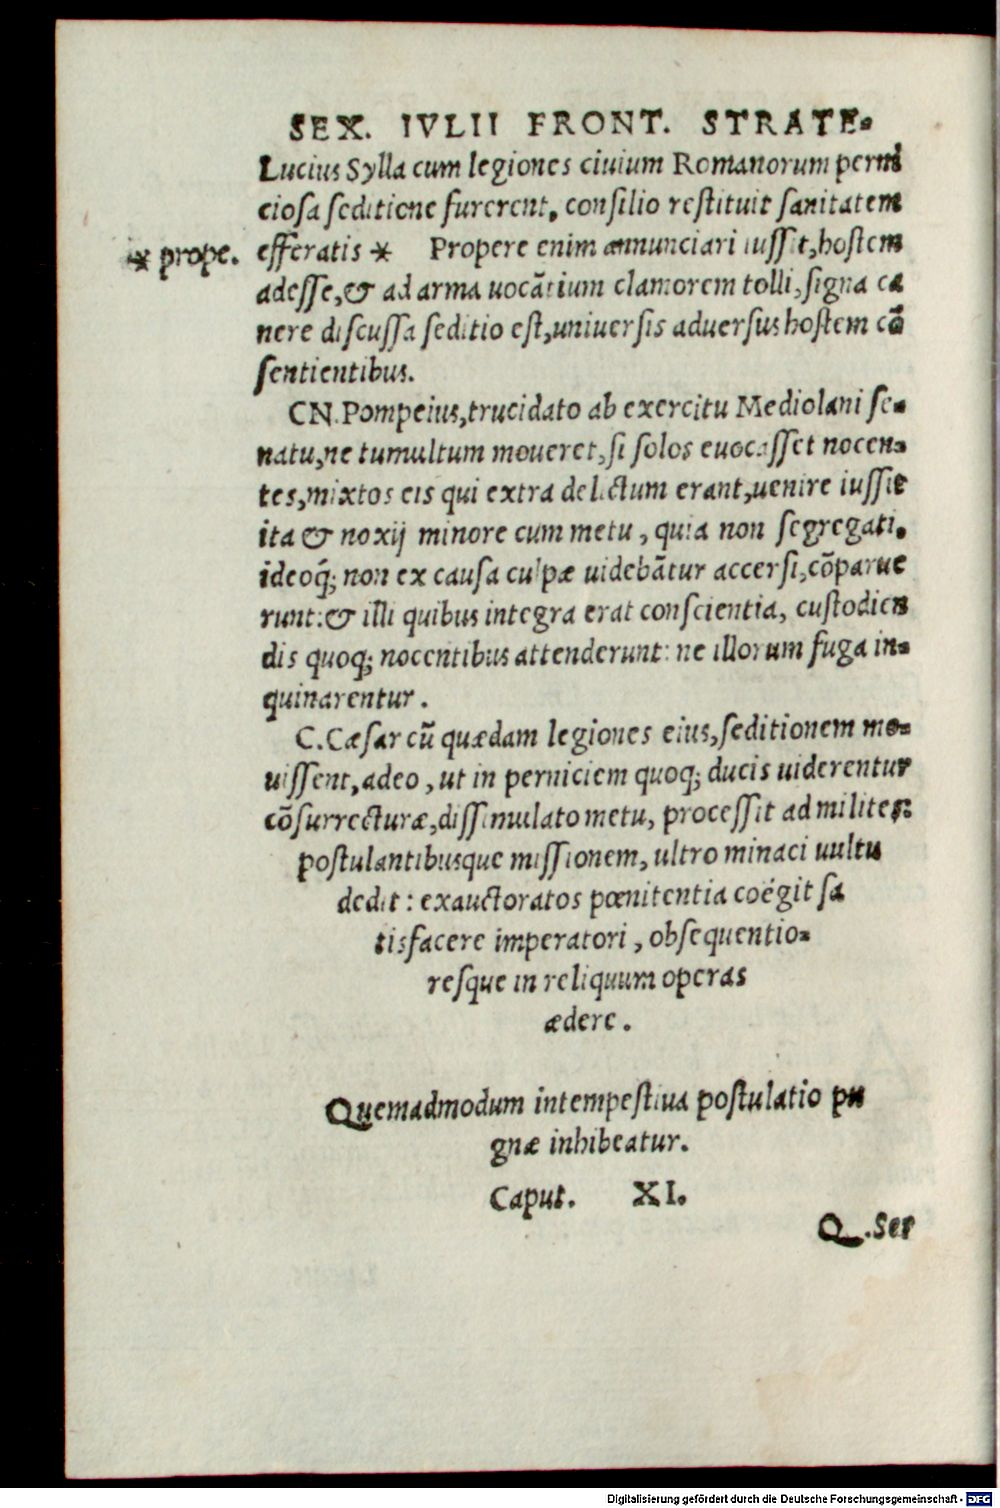 SEX. IVLII FRONT. STRATE-
Lucius Sylla cum legiones ciuium Romanorum perni
ciosa seditione furerent, consilio restituit sanitatem
* prope.
efferatis * Propere enim annunciari iussit, hostem
adesse, & ad arma uocātium clamorem tolli, signa ca
nere discussa seditio est, uniuersis aduersus hostem cō
sentientibus.
CN. Pompeius, trucidato ab exercitu Mediolani se-
natu, ne tumultum moueret, si solos euocasset nocen-
tes, mixtos eis qui extra delictum erant, uenire iussit
ita & noxij minore cum metu, quia non segregati.
ideoq; non ex causa culpæ uidebātur accersi, cōparue
runt: & illi quibus integra erat conscientia, custodien
dis quoq; nocentibus attenderunt: ne illorum fuga in-
quinarentur.
C. Cæsar cū quædam legiones eius, seditionem mo-
uissent, adeo, ut in perniciem quoq; ducis uiderentur
cōsurrecturæ, dissimulato metu, processit ad milites:
postulantibusque missionem, ultro minaci uultu
dedit: exauctoratos pœnitentia coëgit sa
tisfacere imperatori, obsequentio-
resque in reliquum operas
ædere.
Quemadmodum intempestiua postulatio pu
gnæ inhibeatur.
Caput. XI.
Q. Ser
Digitalisierung gefördert durch die Deutsche Forschungsgemeinschaft - DFG